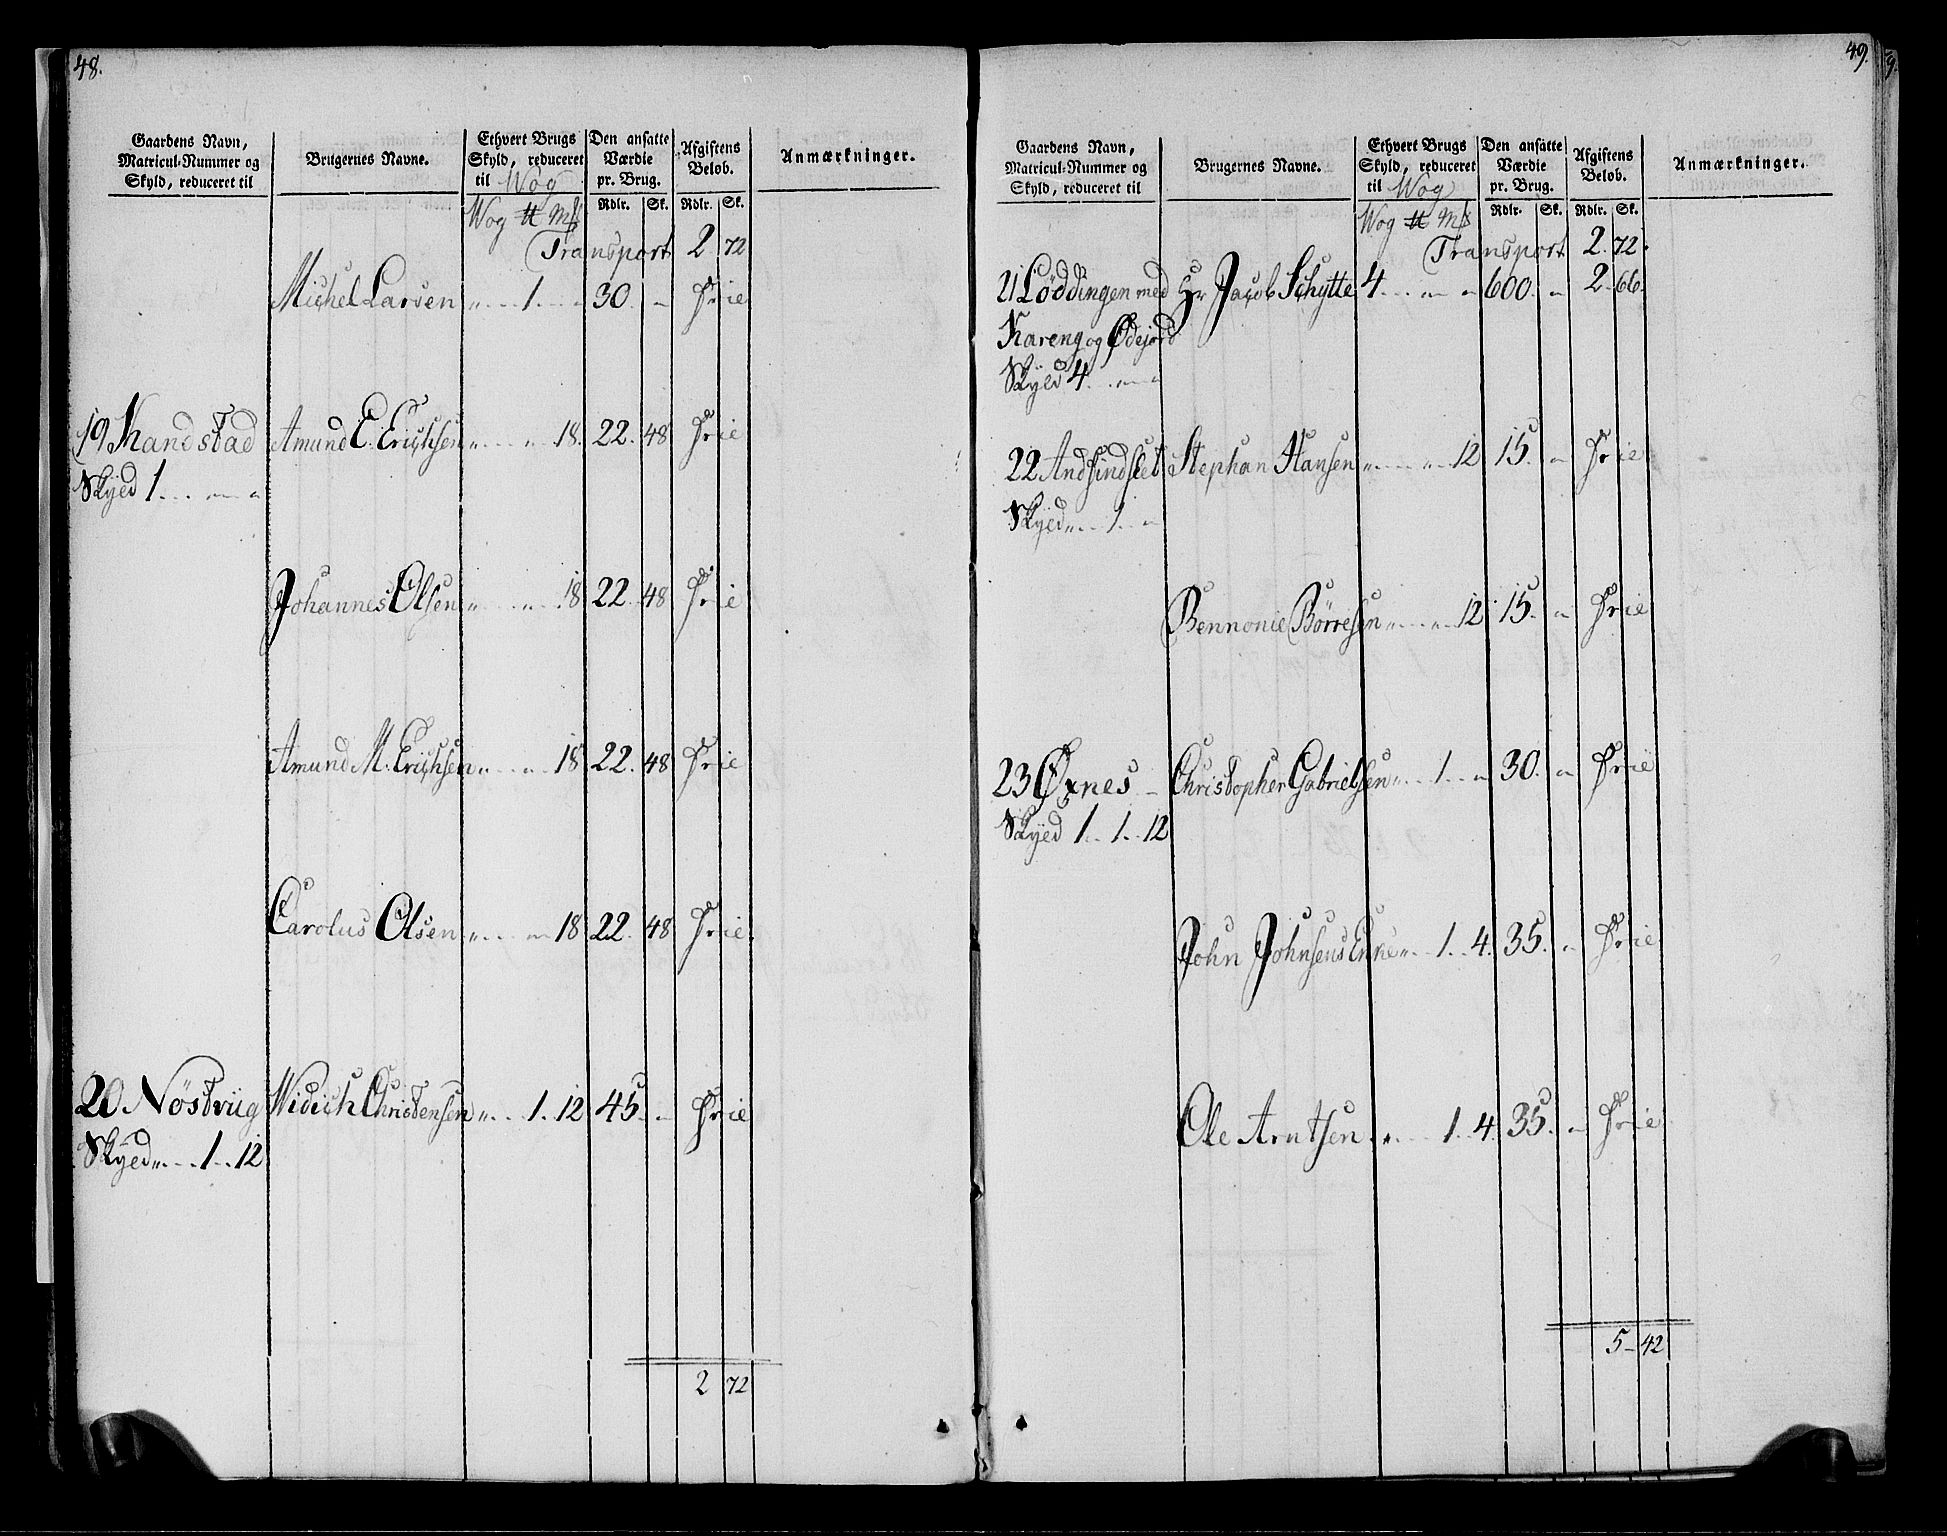 48.
Gaardens Navn, Matricul-Nummer og Skyld, reduceret til
Brugernes Navne.
Ethvert Brugs Skyld, reduceret til Wog
Den ansatte Værdie pr. Brug.
Afgiftens Beløb.
Anmærkninger.
Wog ℔ Mß Rdlr. Sk. Rdlr. Sk.
Transport 2 72
Michel Larsen „ 1 „ 30. „ Frie
19 Kandstad Amund E. Erichsen „ „ 18. 22. 48 Frie
Skyld 1 „ „
Johannes Olsen „ „ 18 22. 48 Frie
Amund M. Erichsen „ „ 18 22. 48 Frie
Carolus Olsen „ „ 18 22. 48 Frie
20 Nöstviig Widich Christensen „ 1. 12 45. „ Frie
Skyld „ 1 12
2 72
49.
Gaardens Navn, Matricul-Nummer og Skyld, reduceret til
Brugernes Navne.
Ethvert Brugs Skyld, reduceret til Wog
Den ansatte Værdie pr. Brug.
Afgiftens Beløb.
Anmærkninger.
Wog ℔ Mß Rdlr. Sk. Rdlr. Sk.
Transport 2. 72.
21 Löddingen med Hr Jacob Schytte 4 „ „ 600. „ 2 66.
Kareng og Ødejord
Skyld 4 „ „
22 Andfindslet Stephan Hansen „ „ 12 15. „ Frie
Skyld „ 1 „
Bennonie Börresen „ „ 12 15. „ Frie
23 Øxnes Christopher Gabrielsen „ 1 „ 30. „ Frie
Skyld 1 1 12
John Johnsens Enke „ 1. 4. 35. „ Frie
Ole Arntsen „ 1 4. 35. „ Frie
5 42